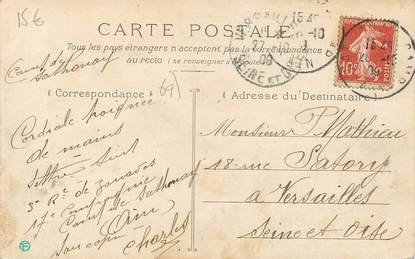 15€
CARTE POSTALE
Tous les pays étrangers n'acceptent pas la correspondance
au recto (se renseigner à la Poste)
Camp de
Sathonay
Correspondance
69)
Adresse du Destinataire
Cordiale poignée
de mains
suit
3e Rt de zouaves
17e Compagnie
Camp de Sathonay
Ton copain
Charles
Monsieur P. Mathieu
18 rue Satory
a Versailles
Seine et Oise
SEINE ET OISE
10c